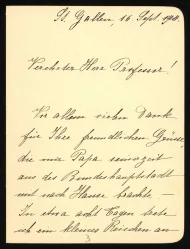 St. Gallen, 16. Sept. 190
Verehrter Herr Professor!
Vor allem vielen Dank
für Ihre freundlichen Grüsse,
die mir Papa seinerzeit
aus der Bundeshauptstadt
mit nach Hause brachte. –
In etwa acht Tagen trete
ich ein kleines Reischen an